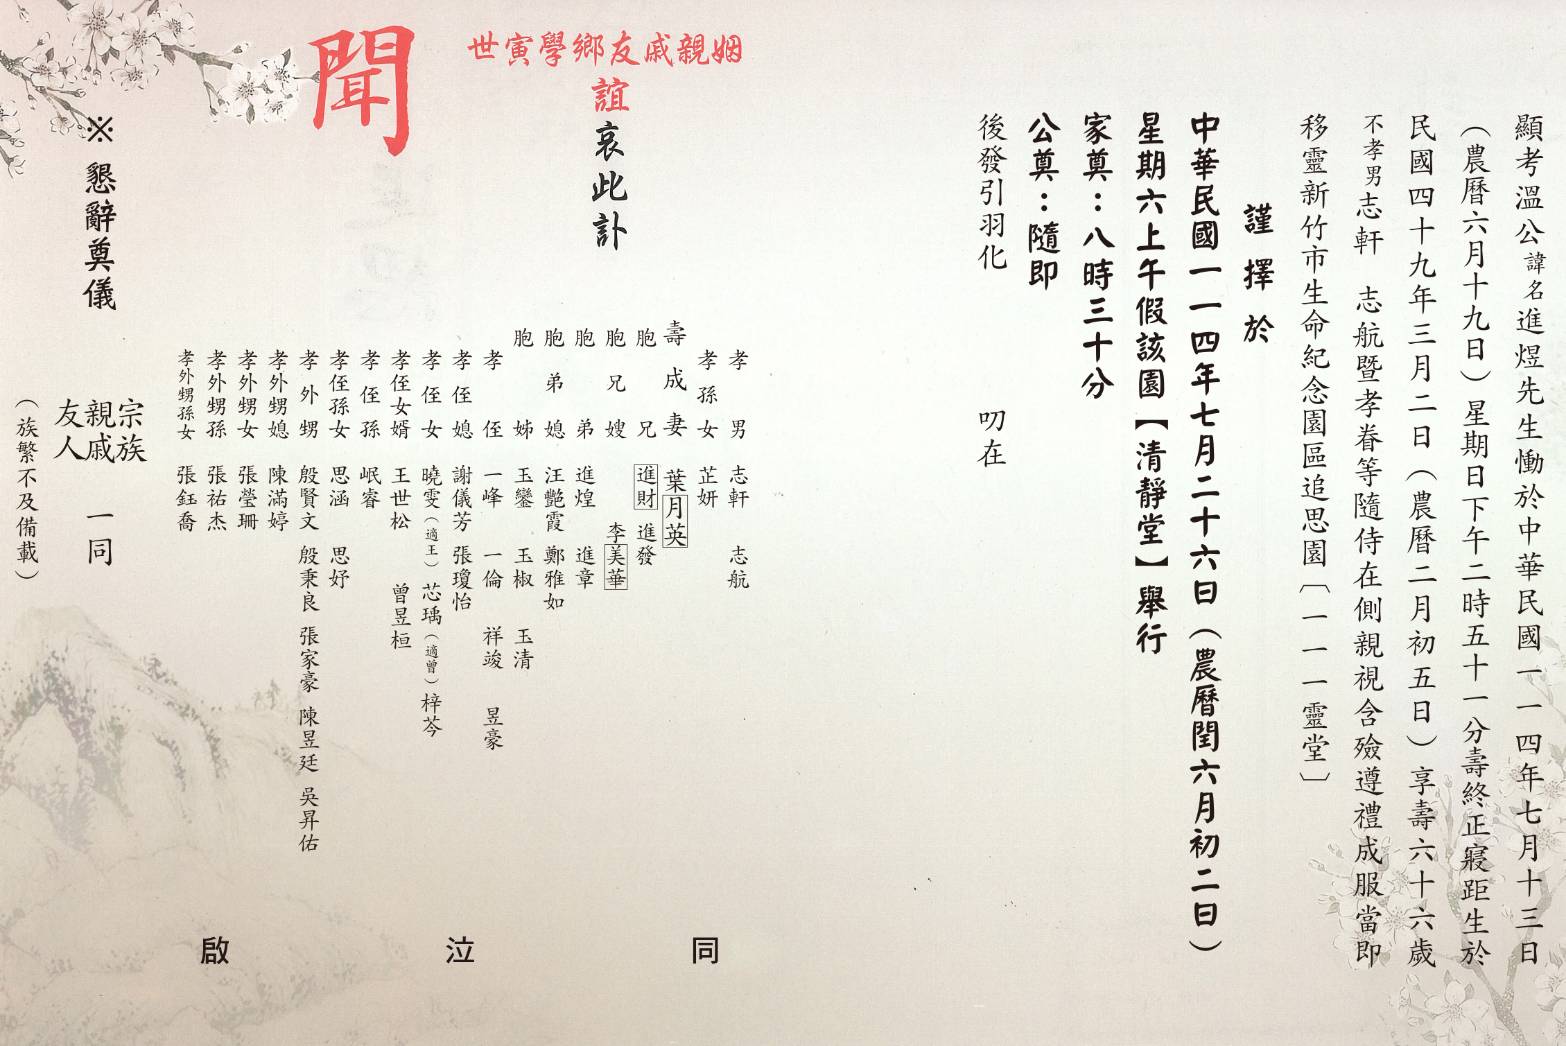 顯考溫公諱名進煜先生慟於中華民國一一四年七月十三日
（農曆六月十九日）星期日下午二時五十一分壽終正寢距生於
民國四十九年三月二日（農曆二月初五日）享壽六十六歲
不孝男志軒　志航暨孝眷等隨侍在側親視含殮遵禮成服當即
移靈新竹市生命紀念園區追思園〔一一一靈堂〕
謹擇於
中華民國一一四年七月二十六日（農曆閏六月初二日）
星期六上午假該園【清靜堂】舉行
家奠：八時三十分
公奠：隨即
後發引羽化
叨在
姻親戚友鄉學寅世
誼
哀此訃
聞
孝男　志軒　志航
孝孫女　芷妍
壽成妻　葉月英
胞兄　進財　進發
胞兄嫂　李美華
胞弟　進煌　進章
胞弟媳　汪艷霞　鄭雅如
胞姊　玉鑾　玉椒　玉清
孝侄　一峰　一倫　祥竣　昱豪
孝侄媳　謝儀芳　張瓊怡
孝侄女　曉雯（適王）芯瑀（適曾）梓芩
孝侄女婿　王世松　曾昱桓
孝侄孫　岷睿
孝侄孫女　思涵　思妤
孝外甥　殷賢文　殷秉良　張家豪　陳昱廷　吳昇佑
孝外甥媳　陳滿婷
孝外甥女　張瑩珊
孝外甥孫　張祐杰
孝外甥孫女　張鈺喬
同泣啟
宗族
親戚　一同
友人
（族繁不及備載）
※懇辭奠儀